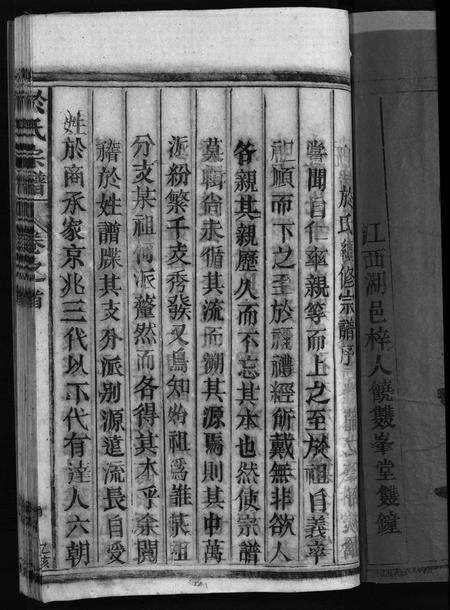 江西湖邑梓人饒雙峯堂雙鐘
於氏續修宗譜序
嘗聞自仁率親等而上之至於祖自義率
祖順而下之至於禰禮經所載無非欲人
各親其親歷久而不忘其本也然使宗譜
莫輯省未循其流而溯其源焉則其中萬
派紛繁千支秀發又烏知始祖為誰某祖
分支某祖何派釐然而各得其本乎余閱
稽於姓譜牒其支分派別源遠流長自受
姓於商承家京兆三代以下代有達人六朝
於氏宗譜
卷之首
乙亥